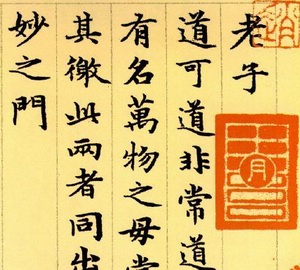 老子
道可道非常道
有名萬物之母常
其徼此兩者同出
妙之門